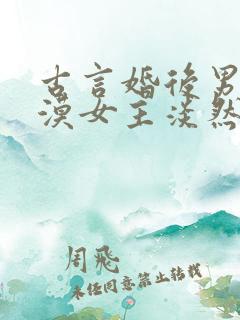 古言婚后男
漠女主淡然
周飛
未经同意禁止转载